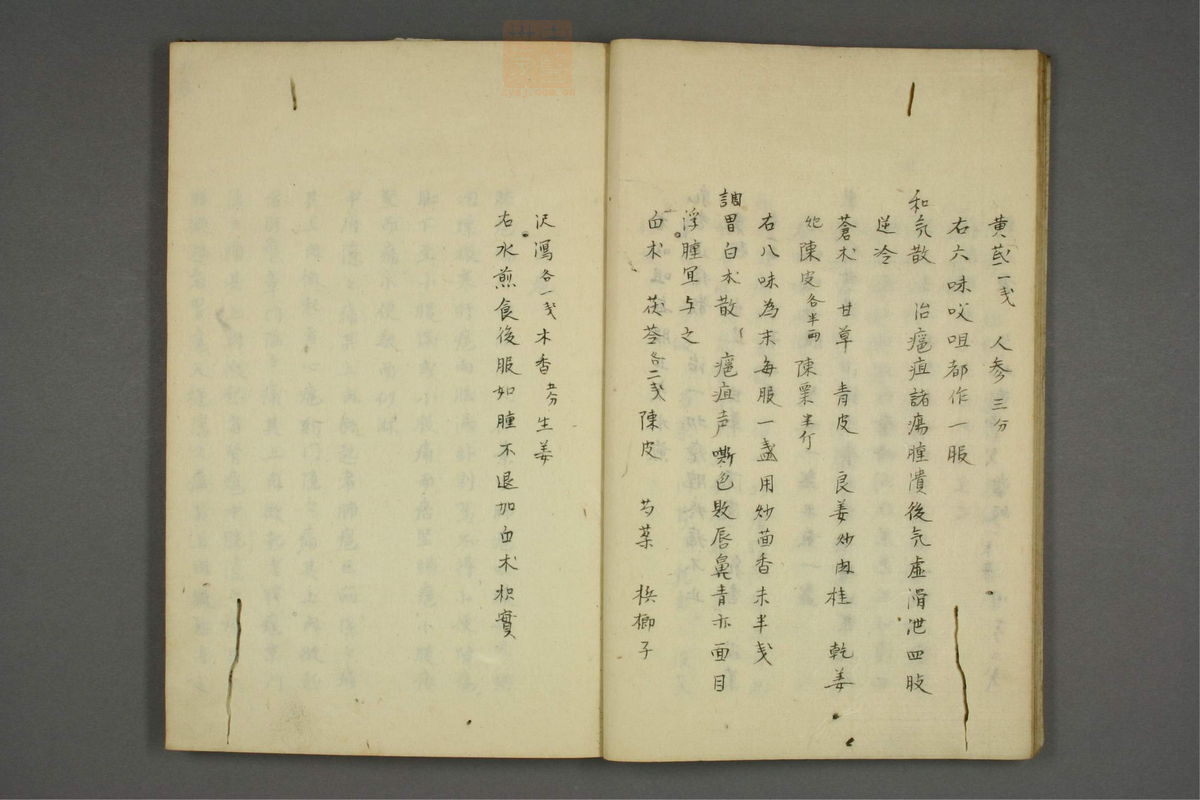 黄芪二戋 人参三分
右六味㕮咀都作一服
和気散 治瘡疽諸瘍腫潰後気虚滑泄四肢
逆冷
蒼朮 甘草 青皮 良姜炒 肉桂 乾姜
炮 陳皮各半両 陳粟半斤
右八味為末毎服一盞用炒茴香末半戋
調胃白朮散 瘡疽声嘶色敗唇鼻青亦面目
浮腫宜与之
白朮 茯苓各二戋 陳皮 芍薬 梹榔子
沢瀉各一戋 木香五分 生姜
右水煎食後服如腫不退加白朮枳實